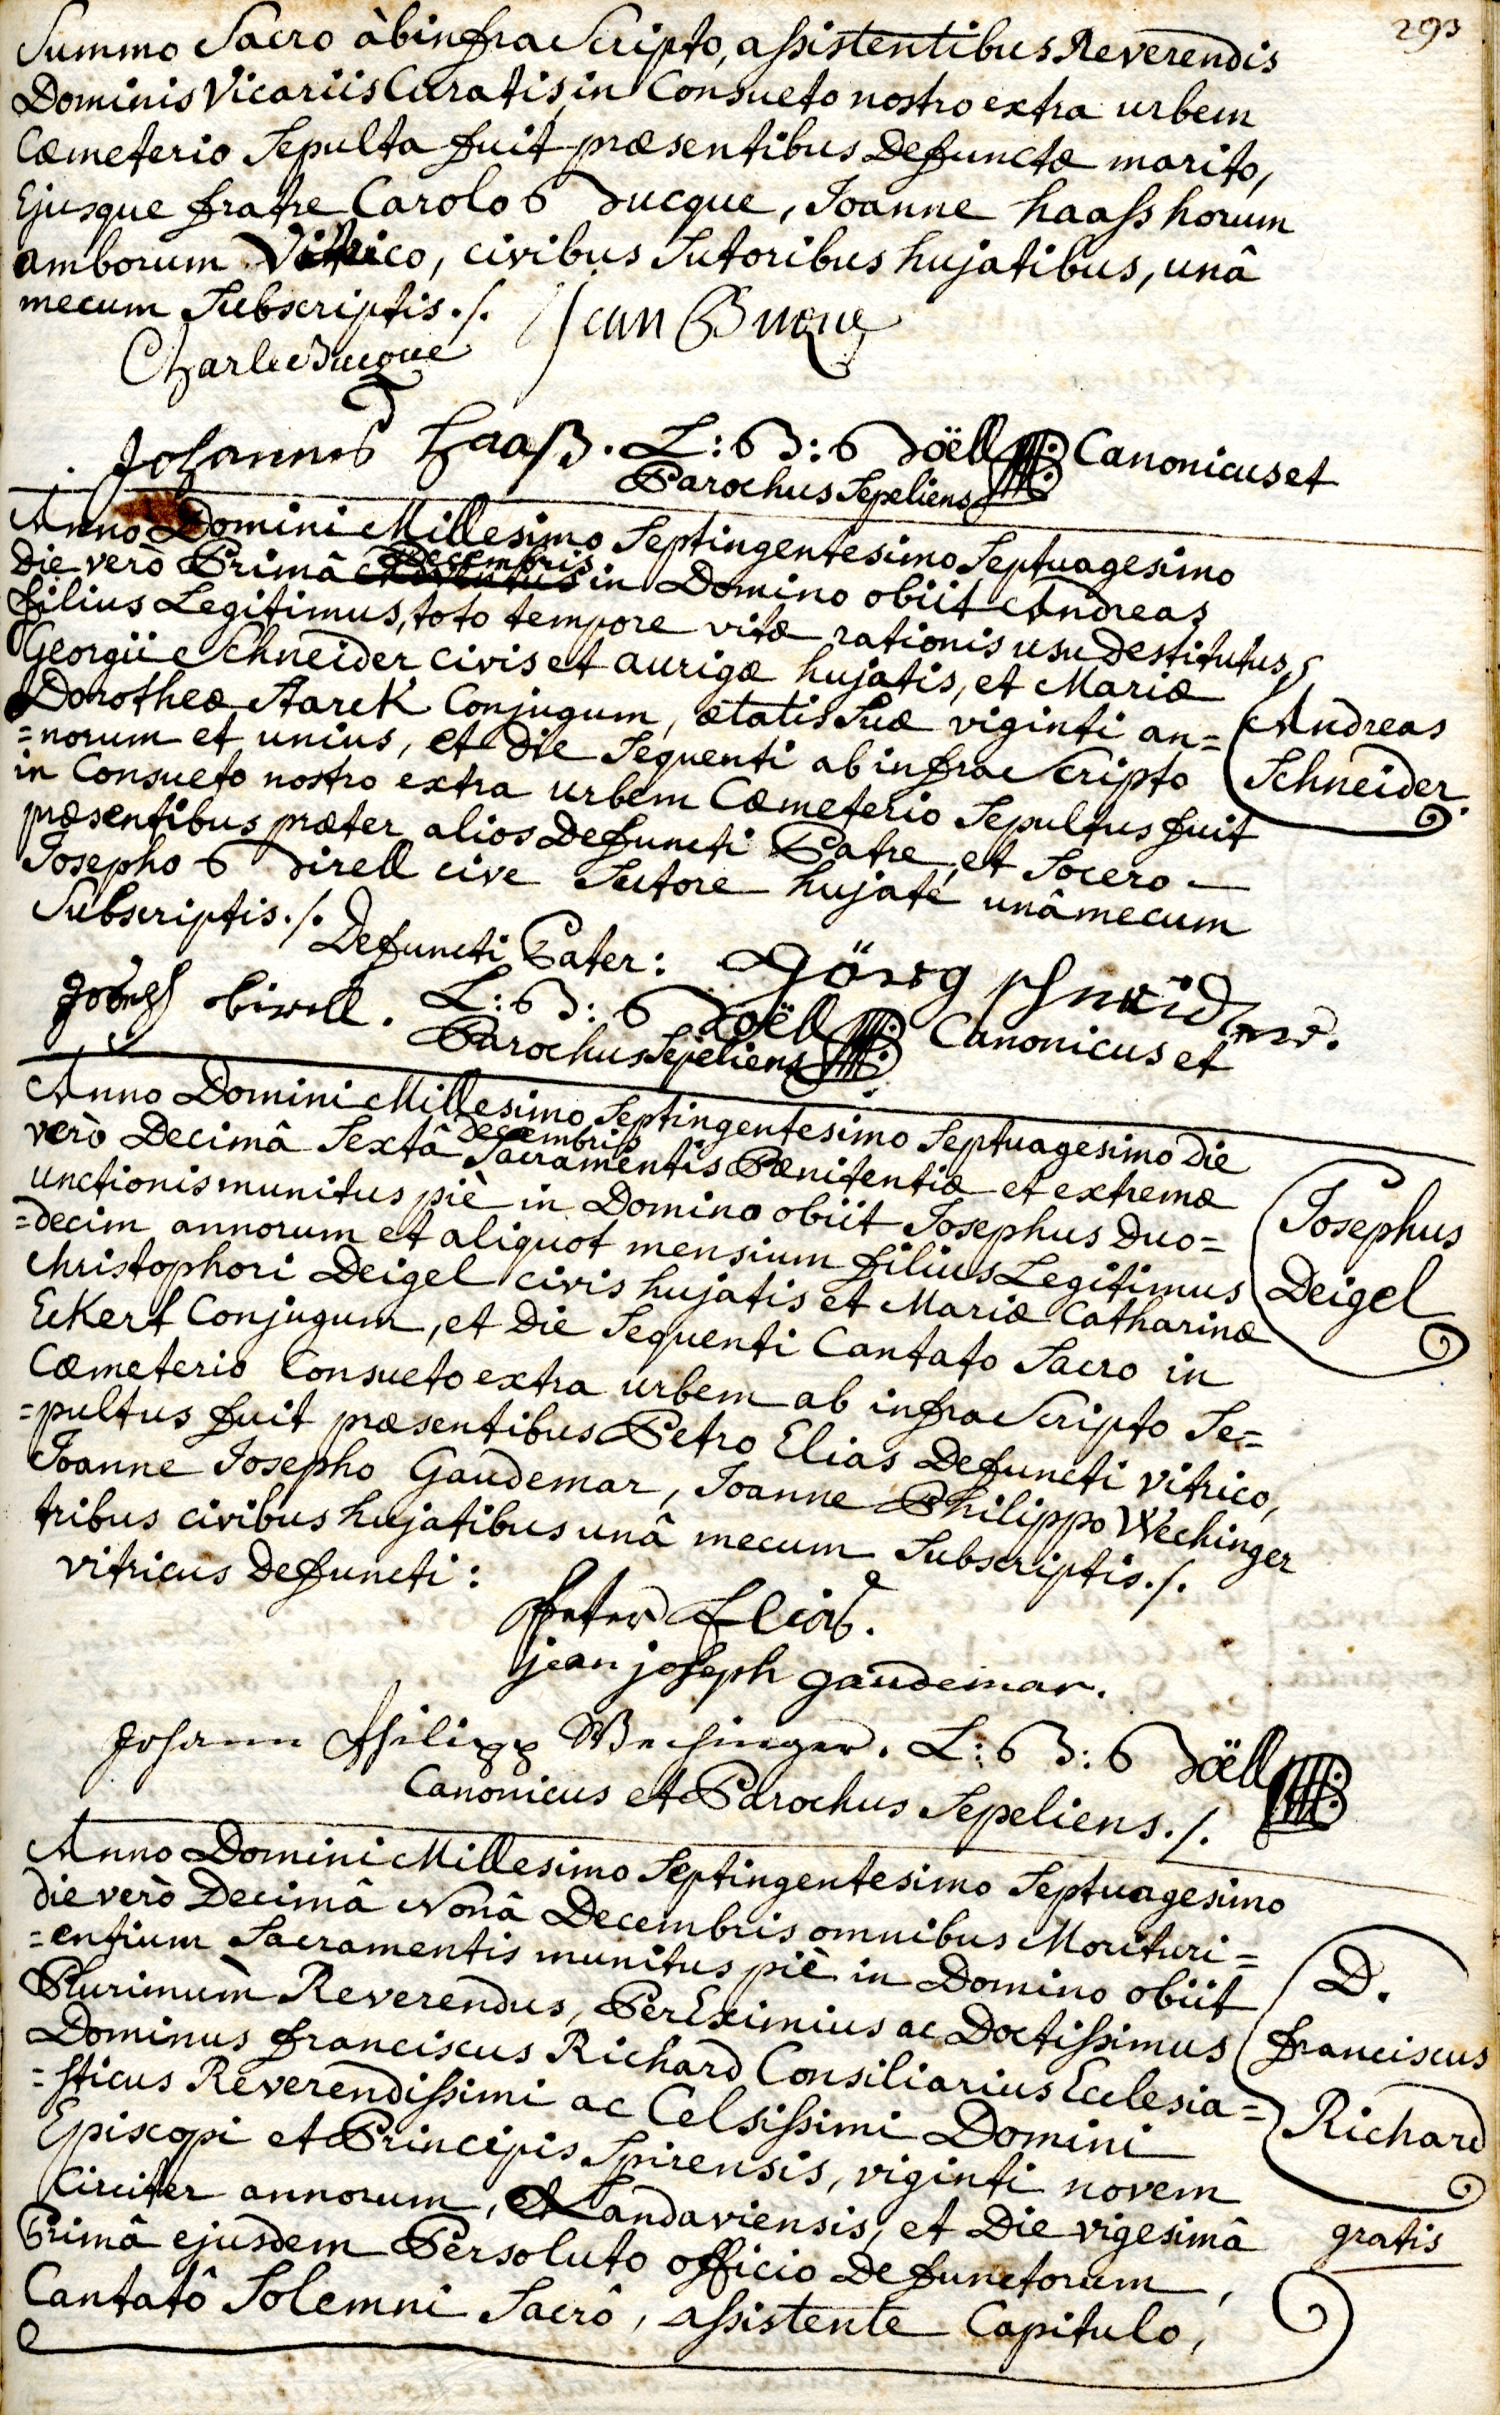 293
Summo Sacro àb infra Scripto, assistentibus Reverendis
Dominis Vicariis Curatis, in Consueto nostro extra urbem
Cœmeterio Sepulta fuit præsentibus Defunctæ marito,
Ejusque fratre Carolo Bucque, Joanne haass horum
amborum Vitrico, civibus Sutoribus hujatibus, unâ
mecum Subscriptis ./. Jean Bucque
Charle Bucque
Johannes Haaß. L: B: Boëll Canonicus et
Parochus Sepeliens
Anno Domini Millesimo Septingentesimo Septuagesimo
Die verò Primâ Decembris in Domino obiit Andreas
filius Legitimus, toto tempore vitæ rationis usu Destitutus,
Georgii Schneider civis et aurigæ hujatis, et Mariæ
Dorotheæ Starck Conjugum, ætatis Suæ viginti an=
=norum et unius, et Die Sequenti ab infra Scripto
in Consueto nostro extra urbem Cœmeterio Sepultus fuit
præsentibus præter alios Defuncti Patre, et Socero
Josepho Birell cive Sutore hujate unâ mecum
Subscriptis ./. Defuncti Pater: Görg Schneider.
Andreas
Schneider.
Joseph birell. L: B: Boëll Canonicus et
Parochus Sepeliens
Anno Domini Millesimo Septingentesimo Septuagesimo Die
verò Decimâ Sextâ Decembris Sacramentis Pœnitentiæ et extremæ
unctionis munitus piè in Domino obiit Josephus Duo=
=decim annorum et aliquot mensium filius Legitimus
Christophori Deigel civis hujatis et Mariæ Catharinæ
Eckert Conjugum, et Die Sequenti Cantato Sacro in
Cœmeterio Consueto extra urbem ab infra Scripto Se=
=pultus fuit præsentibus Petro Elias Defuncti vitrico,
Joanne Josepho Gaudemar, Joanne Philippo Wechinger
tribus civibus hujatibus unâ mecum Subscriptis ./.
Josephus
Deigel
vitricus Defuncti:
Peter Elias.
jean joseph gaudemar.
Johann Philipp Wechinger. L: B: Boëll
Canonicus et Parochus Sepeliens ./.
Anno Domini Millesimo Septingentesimo Septuagesimo
die verò Decimâ Nonâ Decembris omnibus Morituri=
=entium Sacramentis munitus piè in Domino obiit
Plurimùm Reverendus, PerEximius ac Doctissimus
Dominus franciscus Richard Consiliarius Ecclesia=
=sticus Reverendissimi ac Celsissimi Domini
Episcopi et Principis Spirensis, viginti novem
Circiter annorum, et Landaviensis, et Die vigesimâ
Primâ ejusdem Persoluto officio Defunctorum,
Cantatô Solemni Sacrô, assistente Capitulo,
D.
franciscus
Richard
gratis